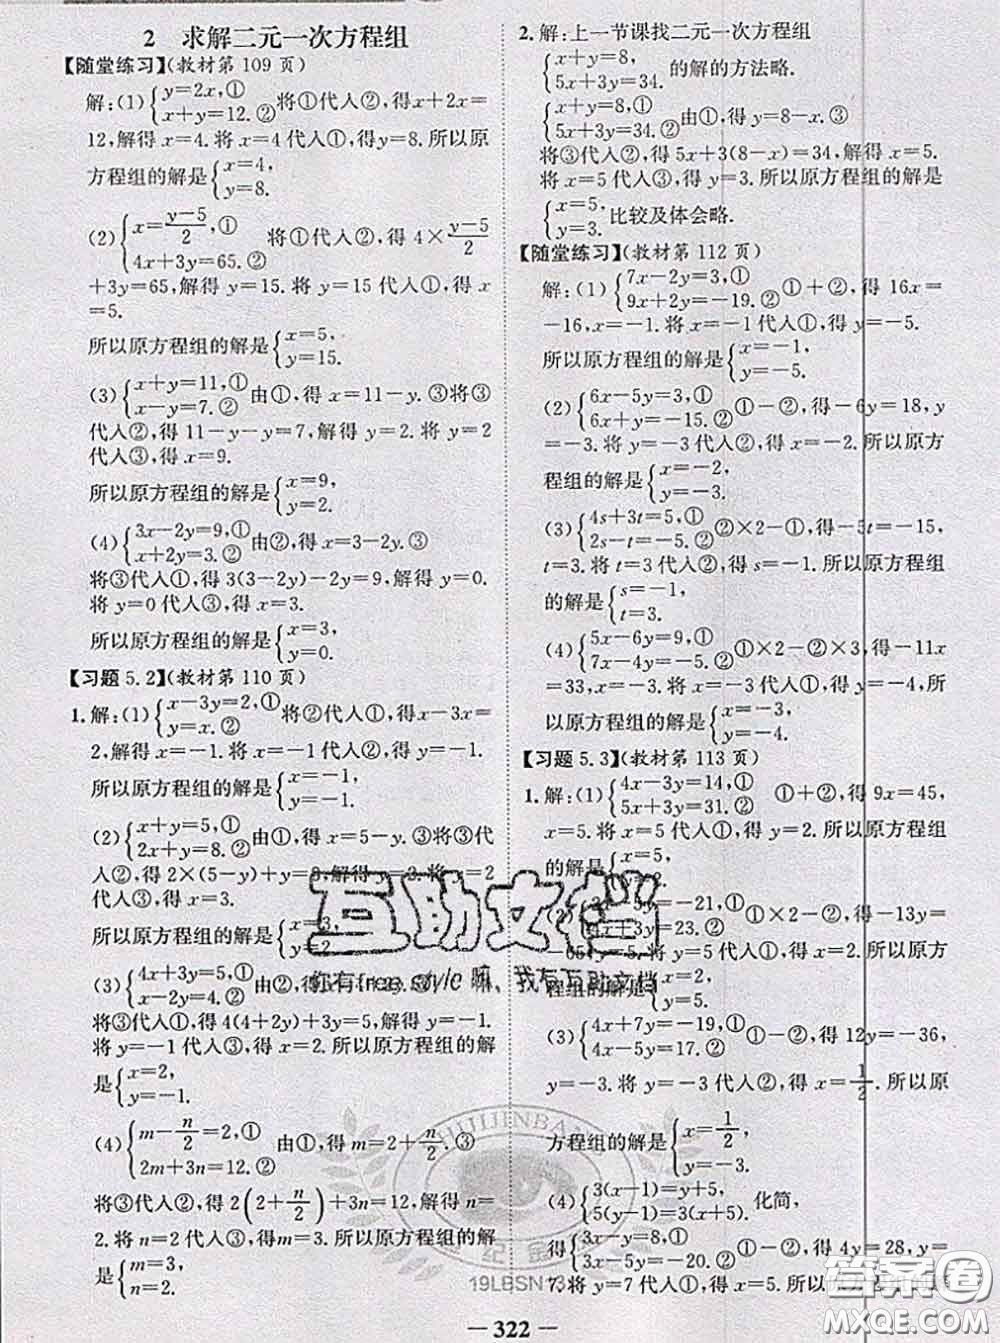 2 求解二元一次方程组
【随堂练习】(教材第 109 页)
解:(1){y=2x,① x+y=12.② 将①代人②,得x+2x=
12,解得 x=4.将 x=4 代人①,得y=8.所以原
方程组的解是{x=4, y=8.
(2){x=(y-5)/2,① 4x+3y=65.② 将①代人②,得 4×(y-5)/2
+3y=65,解得 y=15.将 y=15 代人①,得 x
=5.
所以原方程组的解是{x=5, y=15.
(3){x+y=11,① x-y=7.② 由①,得 x=11-y.③将③
代人②,得 11-y-y=7,解得 y=2.将 y=2
代人③,得 x=9.
所以原方程组的解是{x=9, y=2.
(4){3x-2y=9,① x+2y=3.② 由②,得 x=3-2y.③
将③代人①,得 3(3-2y)-2y=9,解得 y=0.
将 y=0 代人③,得 x=3.
所以原方程组的解是{x=3, y=0.
【习题 5.2】(教材第 110 页)
1.解:(1){x-3y=2,① y=x.② 将②代人①,得x-3x=
2,解得 x=-1.将 x=-1 代人②,得 y=-1.
所以原方程组的解是{x=-1, y=-1.
(2){x+y=5,① 2x+y=8.② 由①,得 x=5-y.③将③代
人②,得 2×(5-y)+y=8,解得 y=2.将 y=2
代人③,得 x=3.
所以原方程组的解是{x=3, y=2.
(3){4x+3y=5,① x-2y=4.② 由②,得
将③代人①,得 4(4+2y)+3y=5,解得 y=-1.
将 y=-1 代人③,得 x=2.所以原方程组的解
是{x=2, y=-1.
(4){m-n/2=2,① 2m+3n=12.② 由①,得 m=2+n/2.③
将③代人②,得 2(2+n/2)+3n=12,解得 n=
2.将 n=2 代人③,得 m=3.所以原方程组的解
是{m=3, n=2.
2.解:上一节课找二元一次方程组
{x+y=8, 5x+3y=34. 的解的方法略.
{x+y=8,① 5x+3y=34.② 由①,得 y=8-x.③
将③代人②,得 5x+3(8-x)=34,解得 x=5.
将 x=5 代人③,得 y=3.所以原方程组的解是
{x=5, y=3. 比较及体会略.
【随堂练习】(教材第 112 页)
解:(1){7x-2y=3,① 9x+2y=-19.② ①+②,得 16x
=-16,x=-1.将 x=-1 代人①,得 y=-5.
所以原方程组的解是{x=-1, y=-5.
(2){6x-5y=3,① 6x+y=-15.② ①-②,得-6y=18,y
=-3.将 y=-3 代人②,得 x=-2.所以原方
程组的解是{x=-2, y=-3.
(3){4s+3t=5,① 2s-t=-5.② ②×2-①,得-5t=-15,
t=3.将 t=3 代人②,得 s=-1.所以原方程组
的解是{s=-1, t=3.
(4){5x-6y=9,① 7x-4y=-5.② ②×3-①×2,得 11x
=-33,x=-3.将 x=-3 代人①,得 y=-4,所
以原方程组的解是{x=-3, y=-4.
【习题 5.3】(教材第 113 页)
1.解:(1){4x-3y=14,① 5x+3y=31.② ①+②,得 9x=45,
x=5.将 x=5 代人①,得 y=2.所以原方程组
的解是{x=5, y=2.
-5y=-21,① +3y=23.② ①-②,得-13y=
-65,y=5.将 y=5 代人①,得 x=2.所以原
方程组的解是{x=2, y=5.
(3){4x+7y=-19,① 4x-5y=17.② ①-②,得 12y=-36,
y=-3.将 y=-3 代人②,得 x=1/2.所以原
方程组的解是{x=1/2, y=-3.
(4){3(x-1)=y+5, 5(y-1)=3(x+5). 化简,
得{3x-y=8,① 3x-5y=-20.② ①-②,得 4y=28,y=
7.将 y=7 代人①,得 x=5.所以
互助文档
你有free style嘛、我有互助文档
SHIJIJINBANG
世纪金榜
19LBSN13
答案圈
MXQE.COM
— 322 —